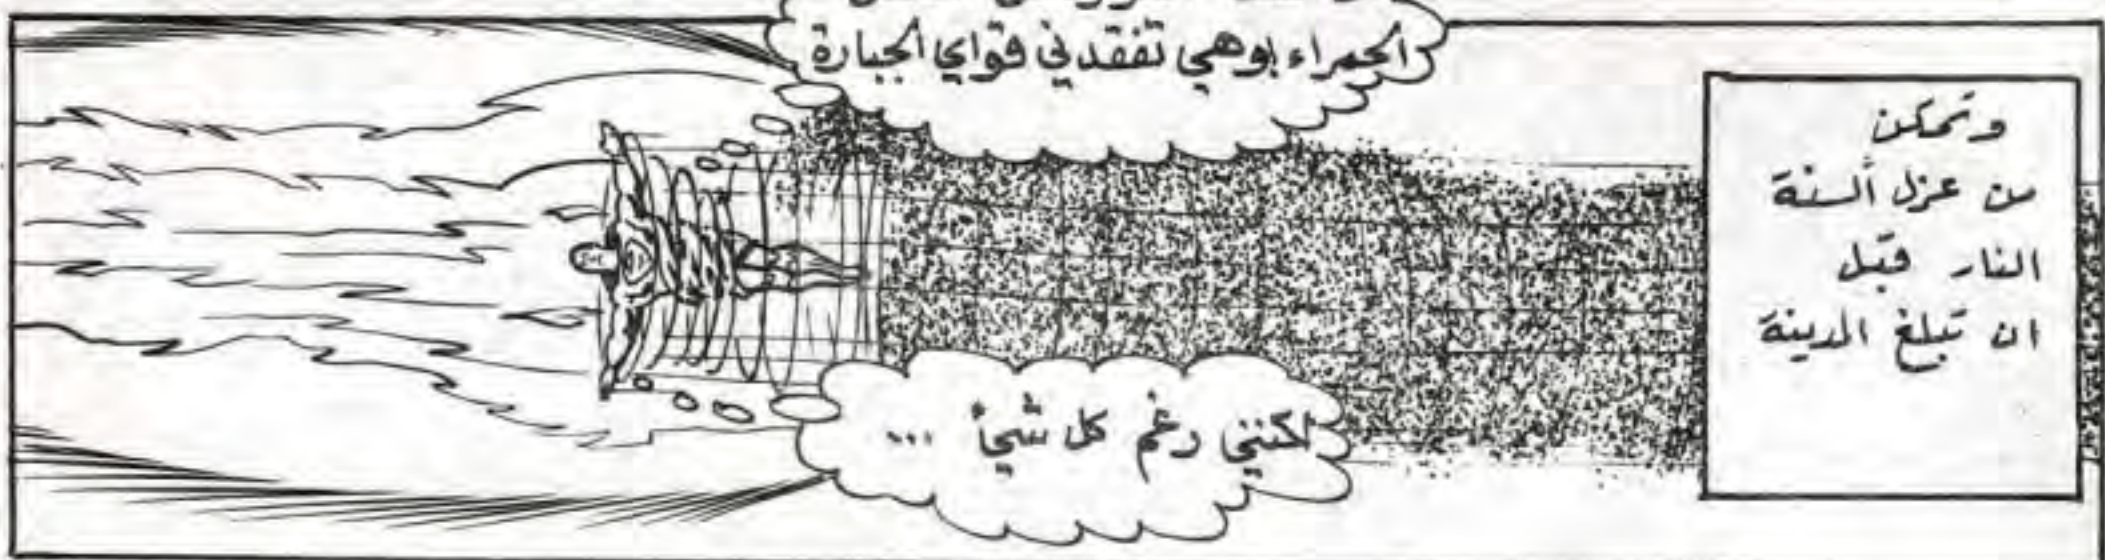 وتمكن
من عزل ألسنة
النار قبل
ان تبلغ المدينة
الحمراء وهي تفقدني قواي الجبارة
لكنني رغم كل شيئ ...